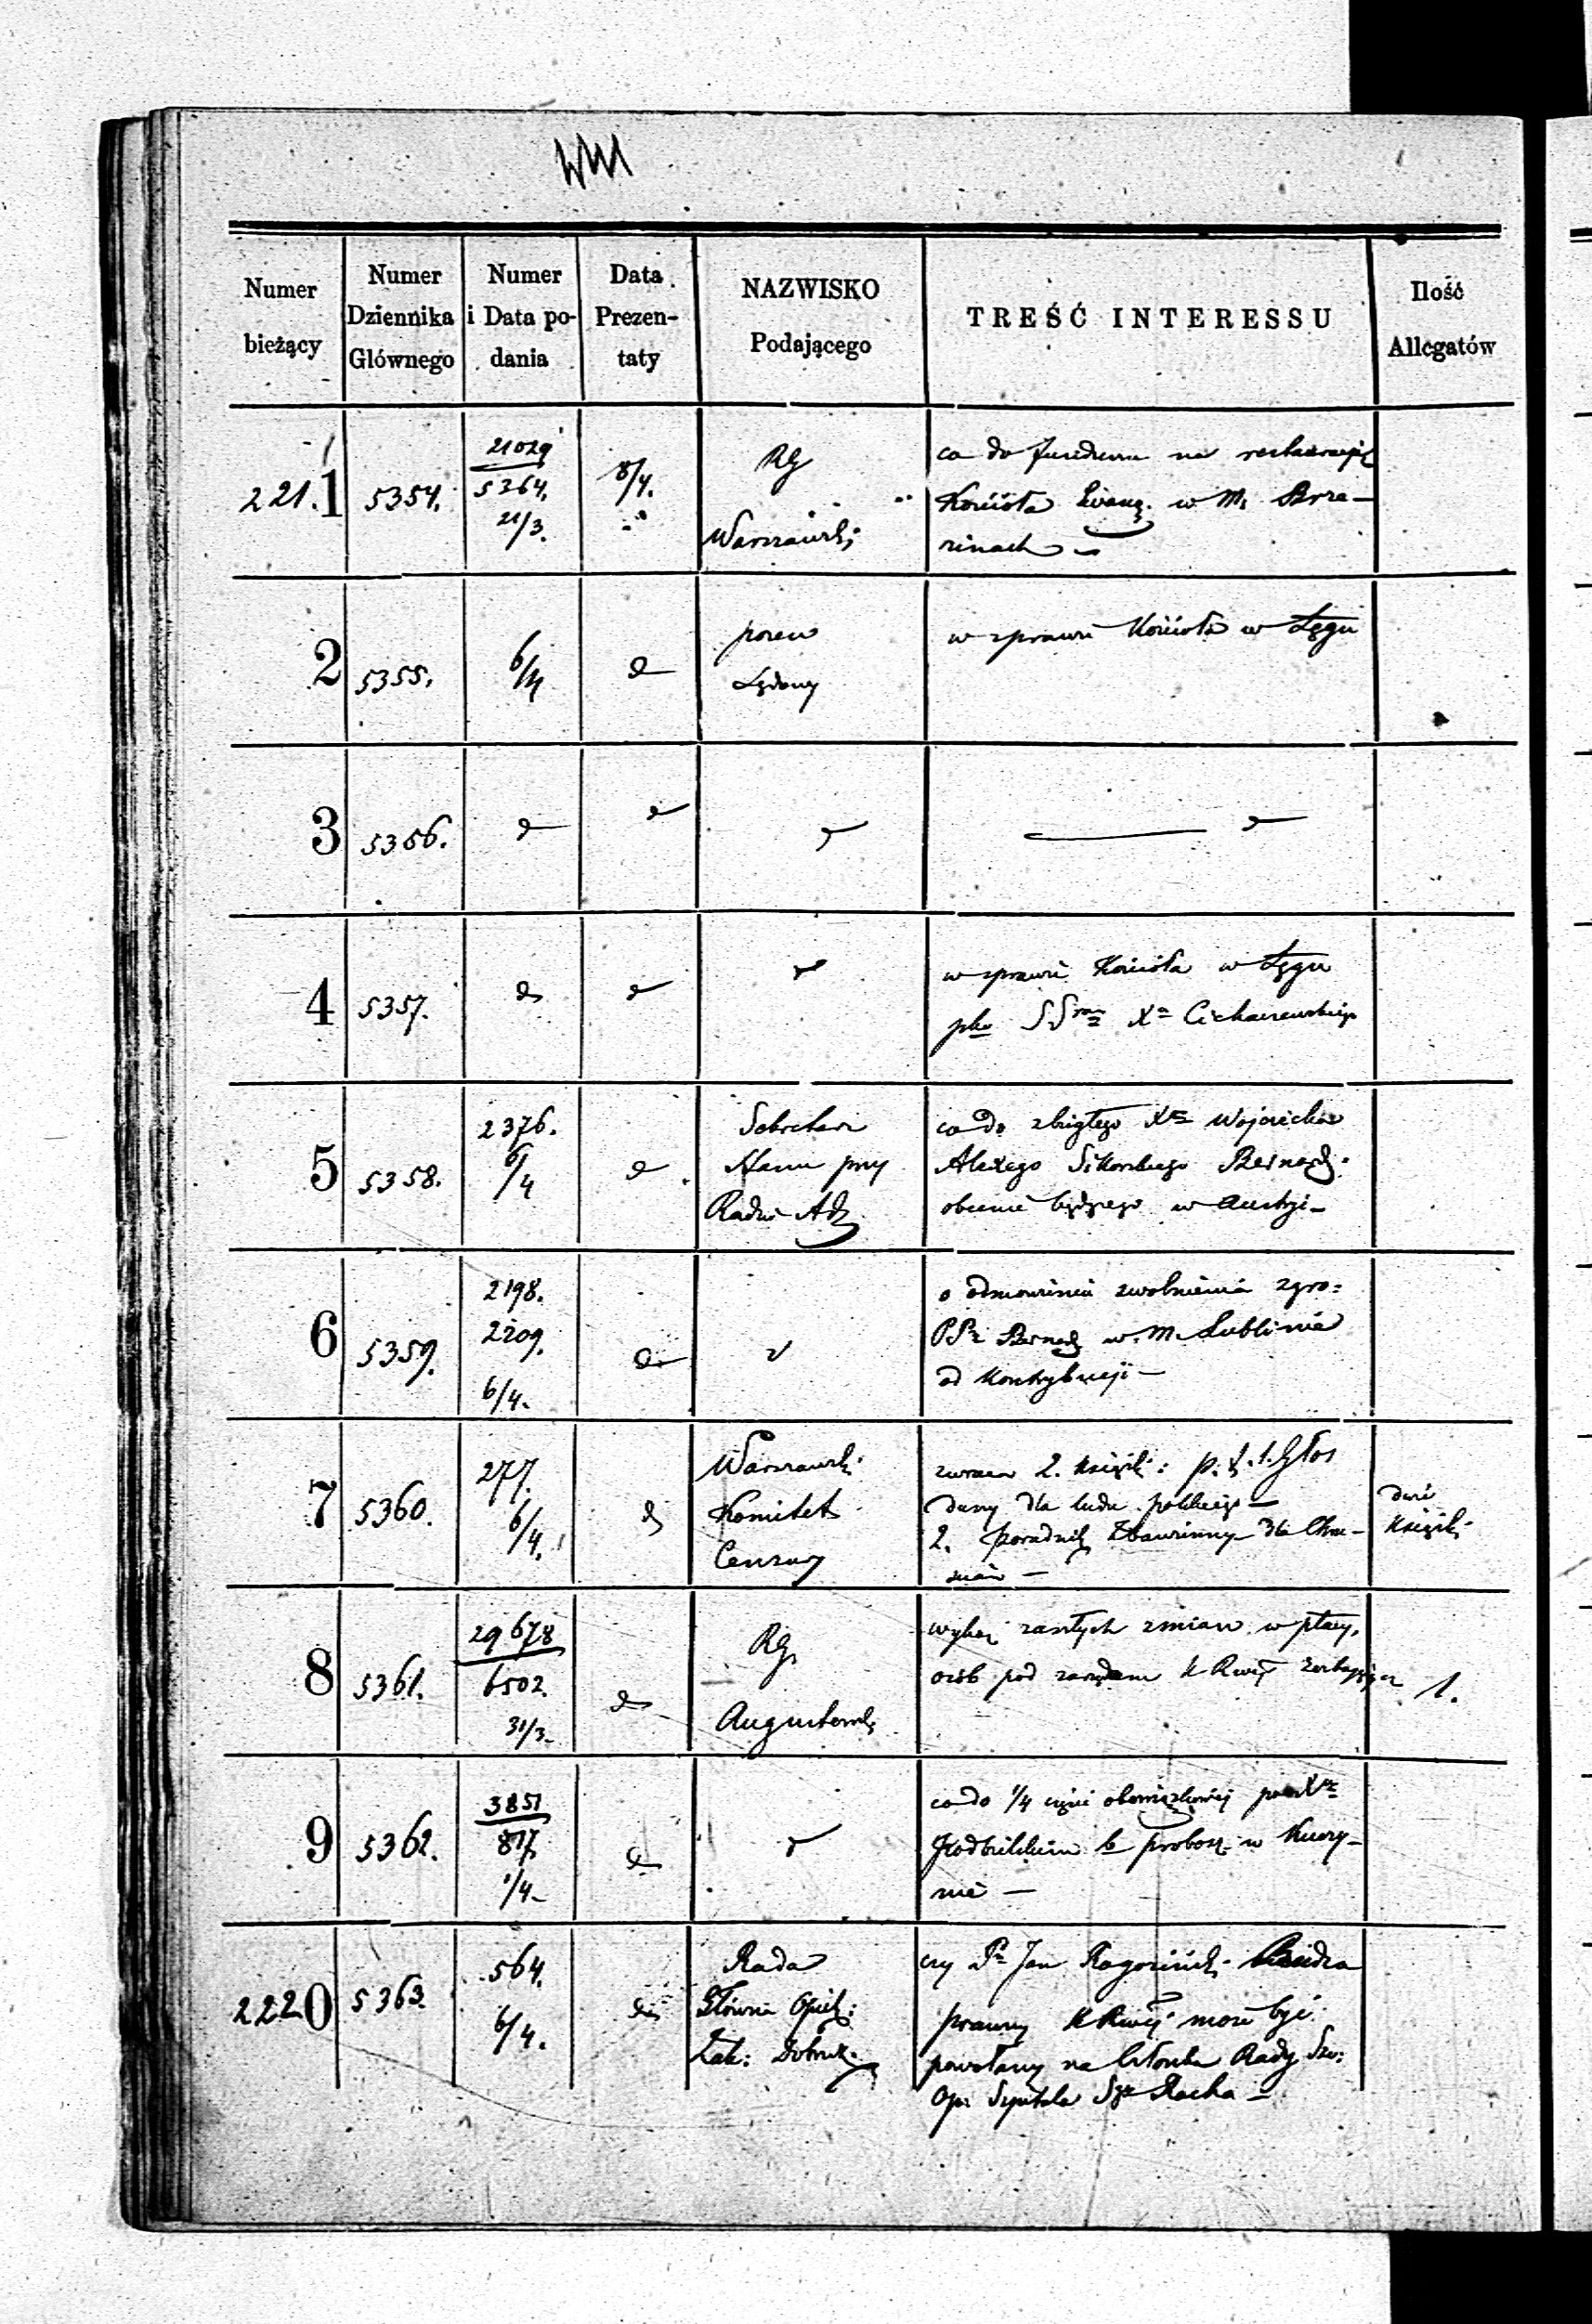 Numer bieżący
Numer Dziennika Głównego
Numer i Data podania
Data Prezentaty
NAZWISKO Podającego
TREŚĆ INTERESSU
Ilość Allegatów
221.1
5354.
21029
5364.
21/3.
8/4.
RG
Warszawski
co do funduszu na restauracyję
Kościoła Ewang. w M. Brze-
zinach —
2
5355.
6/4
d
w sprawie Kościoła w Łęgu
3
5356.
d
d
d
d
4
5357.
d
d
w sprawie Kościoła w Łęgu
5
5358.
2376.
6/4
d
Sekretarz
Stanu przy
Radzie Adz
co do zbiegłego Xa Wojciecha
Alexego Sikorskiego Bernard:
obecnie będącego w Austryi —
6
5359.
2198.
2209.
6/4.
d
o odmówieniu zwolnienia zgro:
PP. Bernard w. M. Lublinie
od kontrybucji —
7
5360.
277.
6/4.
d
Warszawski
Komitet
Cenzury
zwraca 2. książki: p. t. 1. Głos
dany dla ludu polskiego —
2. Poradnik Zbawienny dla
dwie
książki
8
5361.
29678
6502.
31/3.
d
RG
Augustowski
wykaz zaszłych zmian w płacy,
osób pod zarządem KRwej
1.
9
5362.
3851
817
1/4
d
co do 1/4 części
probosz. w Kuczy-
nie —
2220
5363.
564.
6/4.
d
Rada
Główna Opiek:
Zak: Dobrocz.
czy P. Jan Rogoziński
prawny KRwej może być
powołany na Członka Rady Szcz:
Op: Szpitala Sgo Rocha —